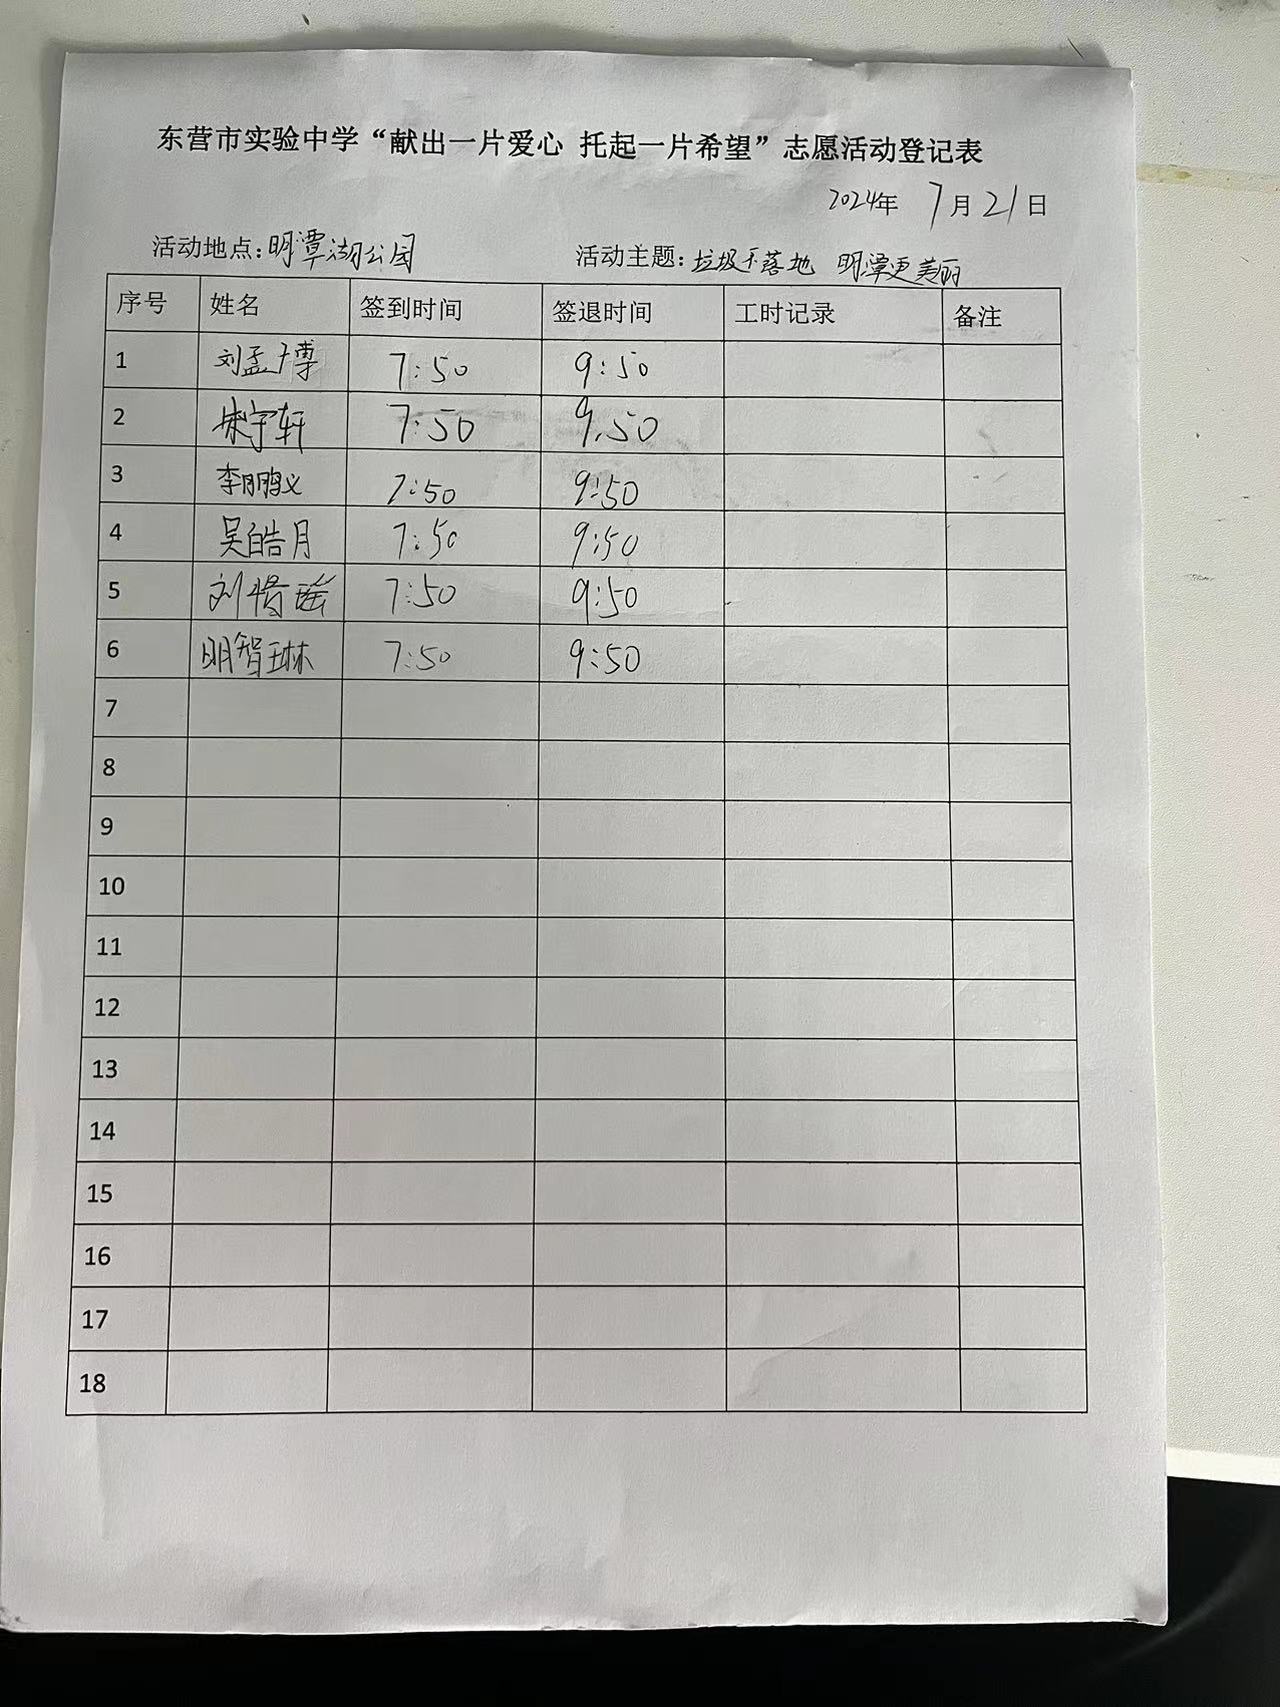 东营市实验中学“献出一片爱心 托起一片希望”志愿活动登记表
2024年 7月21日
活动地点：明潭湖公园 活动主题：垃圾不落地 明潭更美丽
序号 姓名 签到时间 签退时间 工时记录 备注
1 刘孟博 7:50 9:50
2 宋宇轩 7:50 9.50
3 李鹏义 7:50 9:50
4 吴皓月 7:50 9:50
5 刘 瑶 7:50 9:50
6 明智琳 7:50 9:50
7
8
9
10
11
12
13
14
15
16
17
18